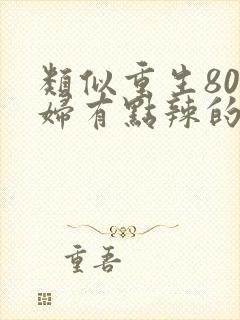 類似重生80
婦有點辣的
重吾